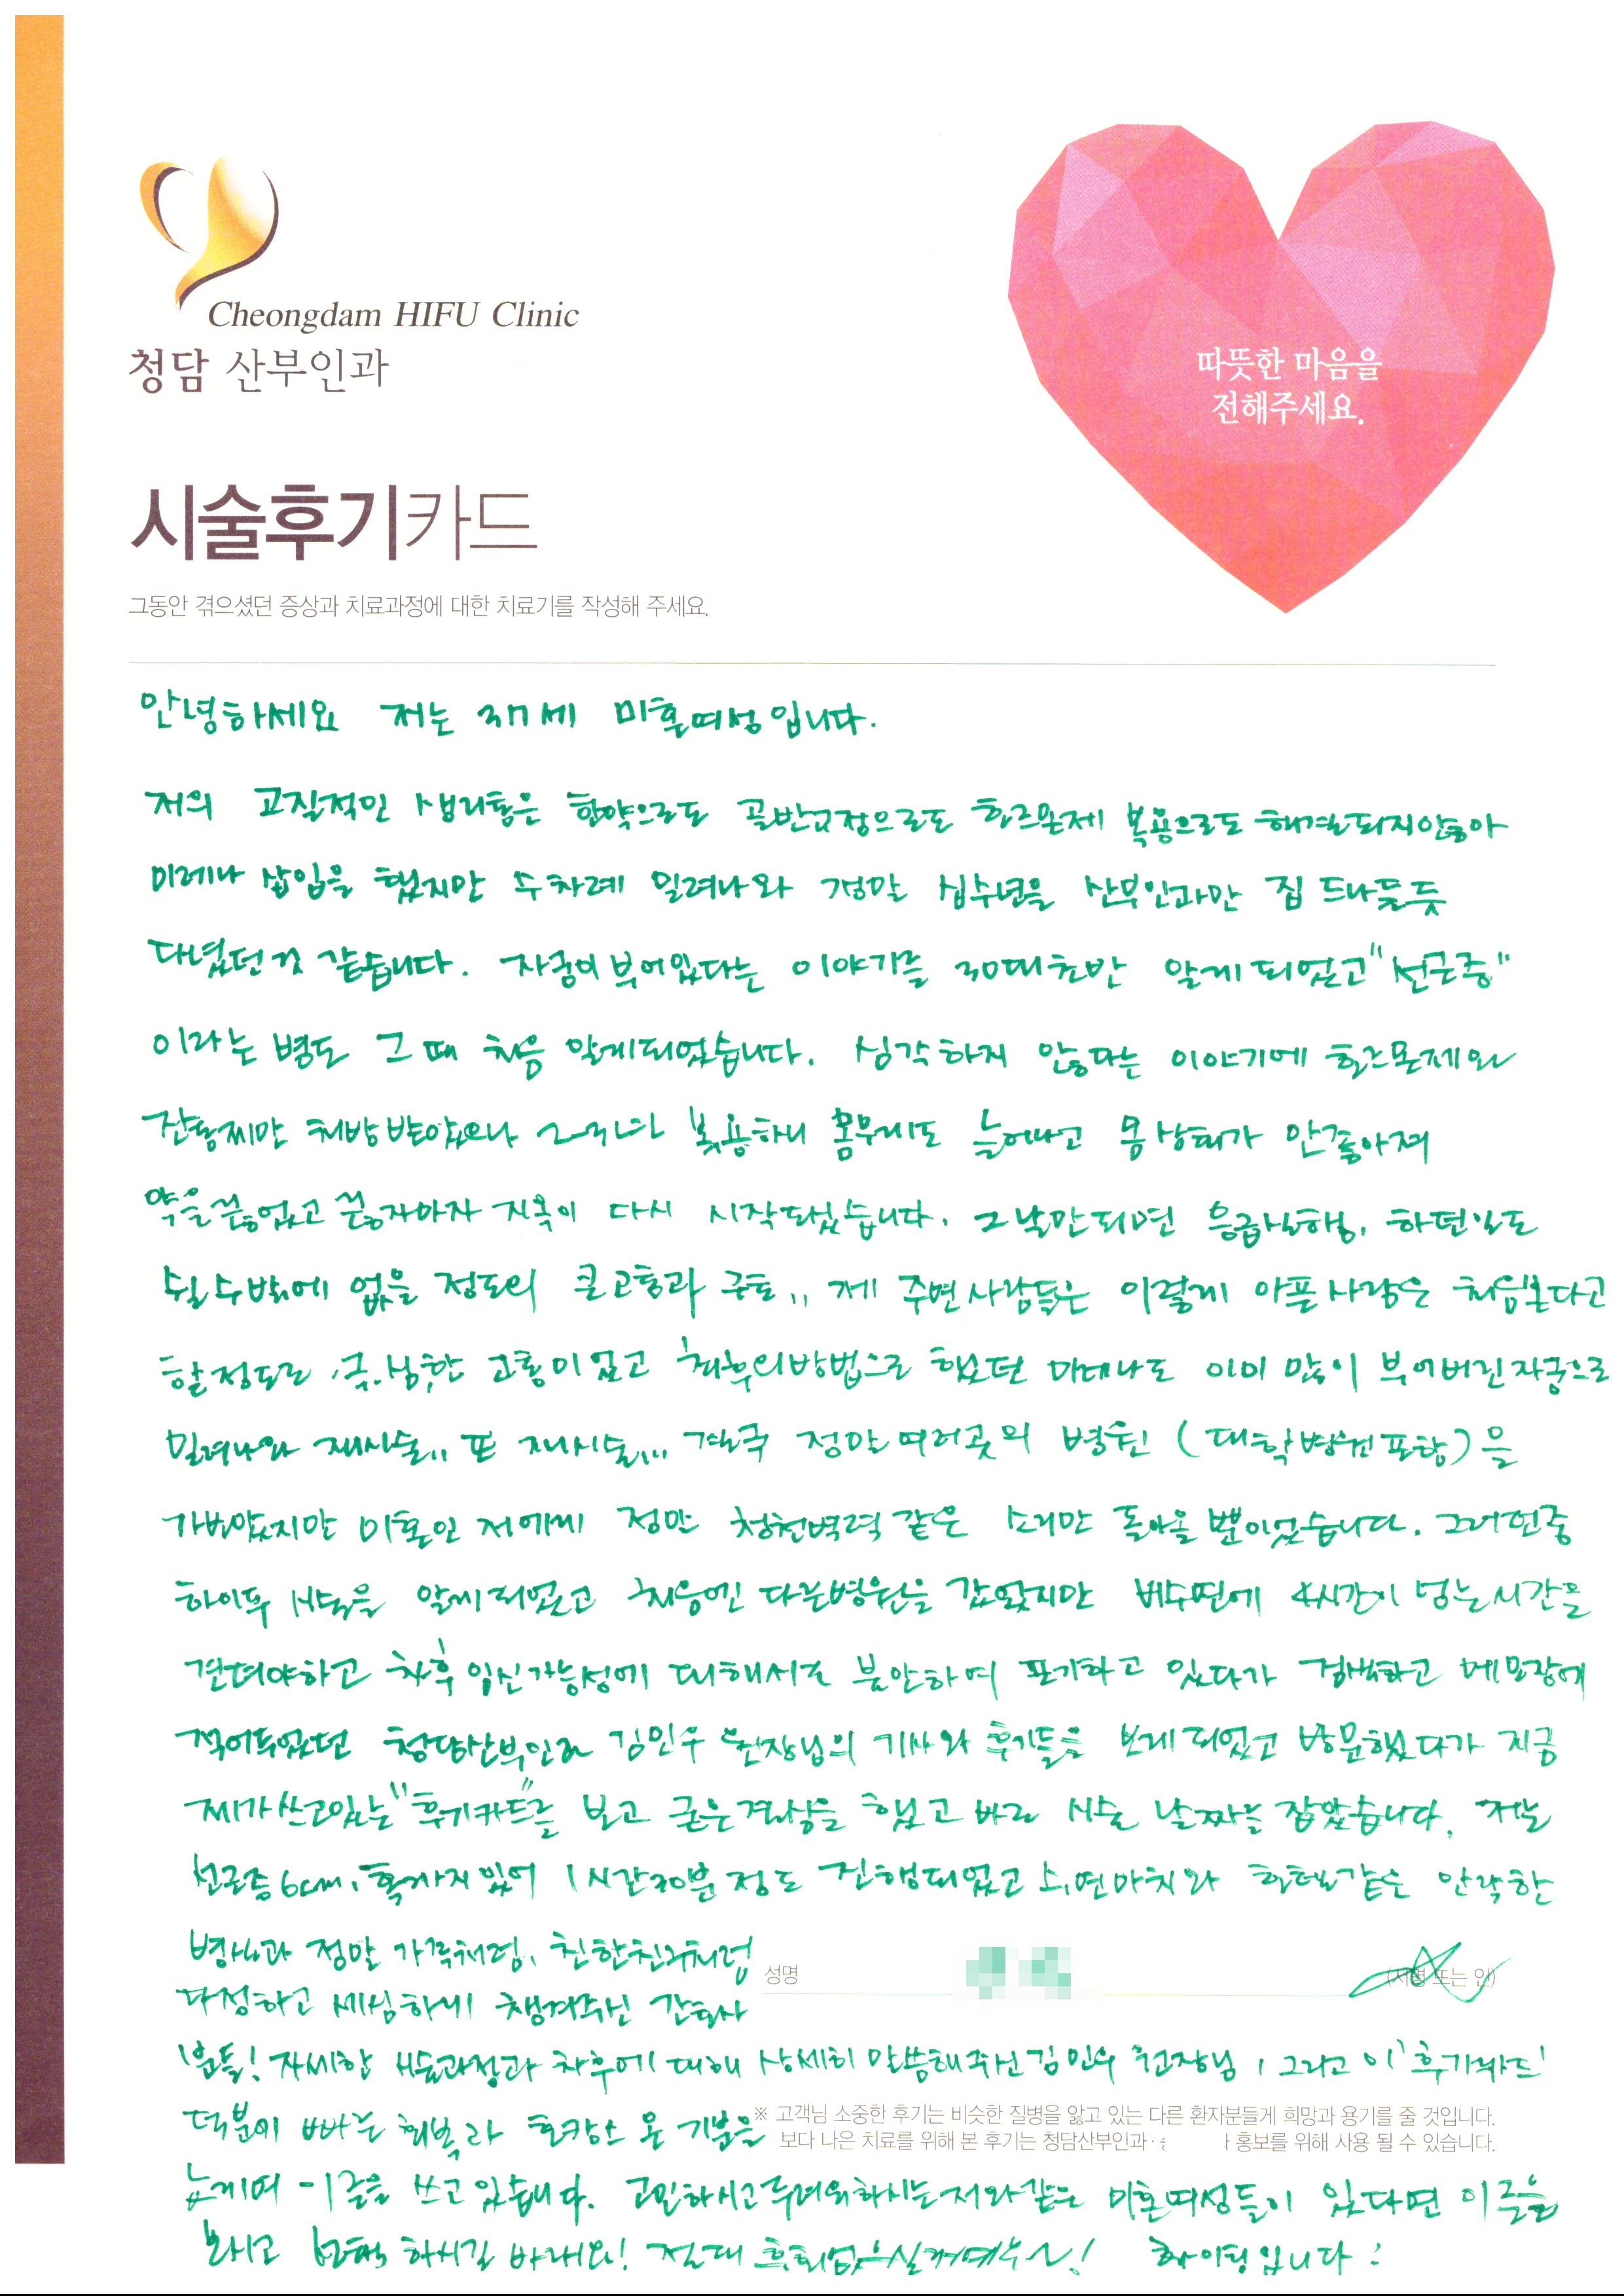 Cheongdam HIFU Clinic
청담 산부인과
따뜻한 마음을
전해주세요.
시술후기카드
그동안 겪으셨던 증상과 치료과정에 대한 치료기를 작성해 주세요.
안녕하세요 저는 37세 미혼여성입니다.
저의 고질적인 생리통은 한약으로도 골반교정으로도 호르몬제 복용으로도 해결되지않아
미레나 삽입을 했지만 수차례 밀려나와 정말 십수년을 산부인과만 집 드나들듯
다녔던것 같습니다. 자궁이 부어있다는 이야기를 30대초반 알게되었고 "선근증"
이라는 병도 그 때 처음 알게되었습니다. 심각하지 않다는 이야기에 호르몬제와
진통제만 처방받았으나 복용하니 몸무게도 늘어나고 몸상태가 안좋아져
약을끊었고 끊자마자 지옥이 다시 시작되었습니다. 그날만되면 응급실행, 하던일도
쉴수밖에 없을 정도의 큰고통과 구토,, 제 주변사람들은 이렇게 아픈사람은 처음본다고
할정도로 극심한 고통이었고 최후의방법으로 했던 미레나도 이미 많이 부어버린자궁으로
밀려나와 재시술,, 또 재시술,,, 결국 정말여러곳의 병원 (대학병원포함)을
가보았지만 미혼인 저에게 정말 청천벽력 같은 소리만 돌아올 뿐이었습니다. 그러던중
하이푸 시술을 알게되었고 처음엔 다른병원을 갔었지만 4시간이 넘는시간을
견뎌야하고 차후 임신가능성에 대해서도 불안하여 포기하고 있다가 검색하고 메모장에
적어두었던 청담산부인과 김민우 원장님의 기사와 후기들을 보게되었고 방문했다가 지금
제가쓰고있는 "후기카드"를 보고 굳은결심을 했고 바로 시술 날짜를 잡았습니다. 저는
선근증6cm, 혹까지있어 1시간30분정도 진행되었고 수면마취와 호텔같은 안락한
병실과 정말 가족처럼, 친한친구처럼
다정하고 세심하게 챙겨주신 간호사
님들! 자세한 시술과정과 차후에 대해 상세히 말씀해주신 김민우 원장님, 그리고 이 '후기카드'
덕분에 빠른 회복과 호캉스 온 기분을
느끼며 이글을 쓰고있습니다. 고민하시고 두려워하시는 저와같은 미혼여성들이 있다면 이글을
보시고 선택 하시길 바래요! 절대 후회없으실거예요! 화이팅입니다:
성명
(서명 또는 인)
※ 고객님 소중한 후기는 비슷한 질병을 앓고 있는 다른 환자분들게 희망과 용기를 줄 것입니다.
보다 나은 치료를 위해 본 후기는 청담산부인과· 홍보를 위해 사용 될 수 있습니다.